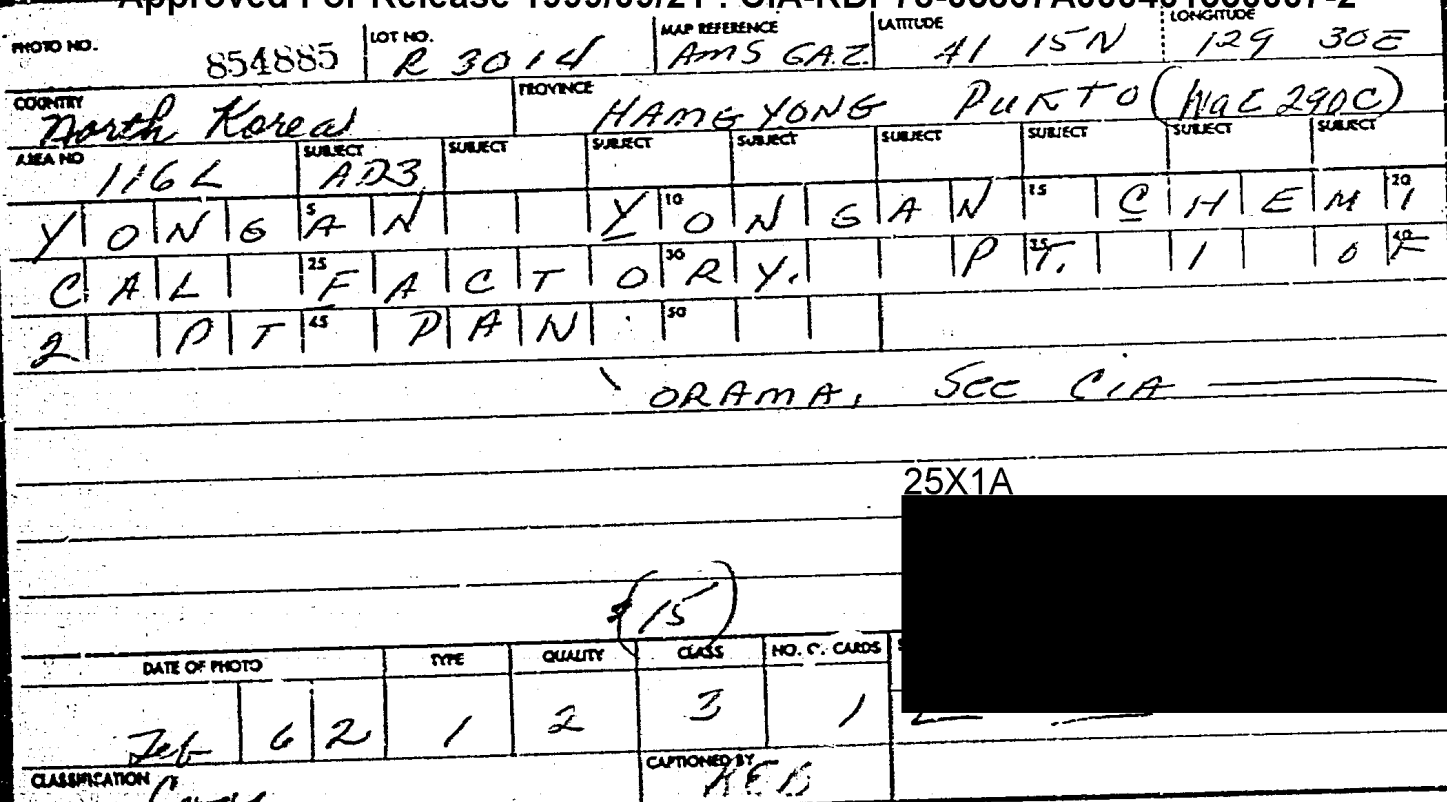 Approved For Release 1999/09/21 : CIA-RDP78-
PHOTO NO. 854885 LOT NO. R 3014 MAP REFERENCE AMS GAZ. LATITUDE 41 15N LONGITUDE 129 30E
COUNTRY North Korea PROVINCE HAMGYONG PUKTO (WAC 290C)
AREA NO 116L SUBJECT AD3 SUBJECT SUBJECT SUBJECT SUBJECT SUBJECT SUBJECT SUBJECT
YONG 5 AN YONGAN 10 15 CHEMI 20
CAL 25 FACTORY. 30 PT. 35 1 OF 40
2 PT 45 PAN 50
ORAMA, See CIA
25X1A
(15)
DATE OF PHOTO TYPE QUALITY CLASS NO. OF CARDS
Feb 62 1 2 3 1
CLASSIFICATION CAPTIONED BY KEB